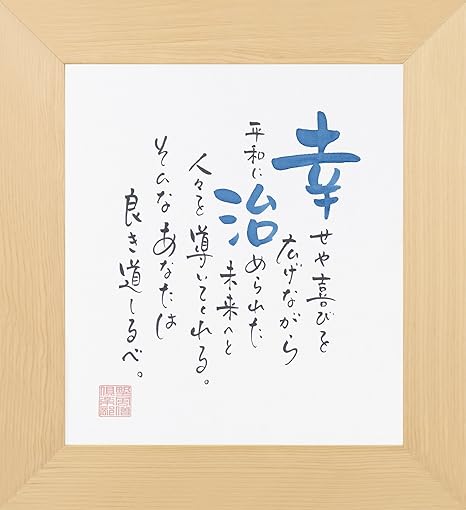 幸せや喜びを
広げながら
平和に治められた
未来へと
人々を導いてくれる。
そんなあなたは
良き道しるべ。